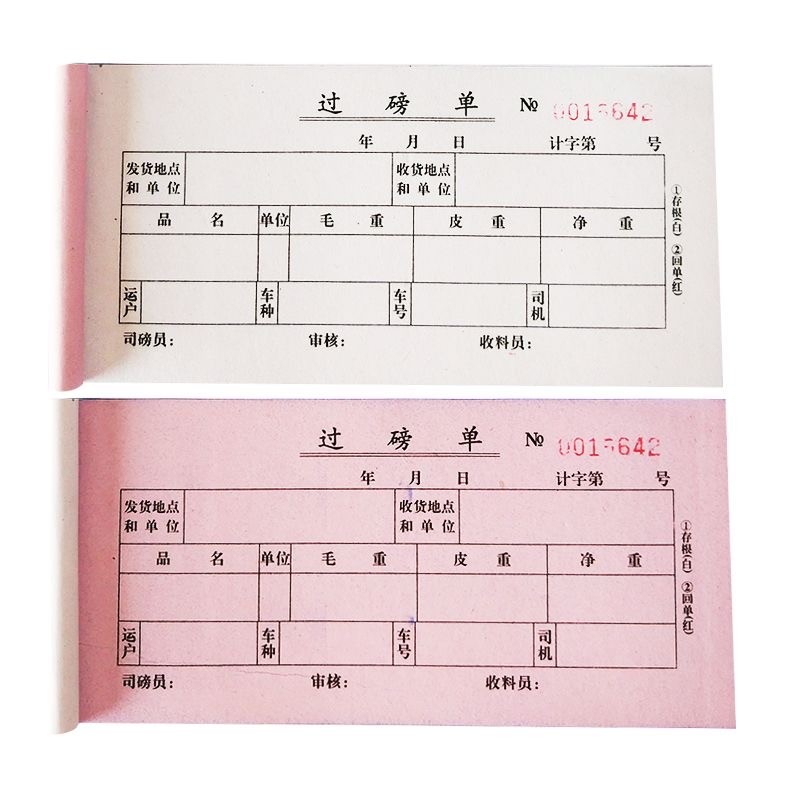 过 磅 单 № 0015642
年 月 日 计字第 号
发货地点和单位 收货地点和单位
品 名 单位 毛 重 皮 重 净 重
运户 车种 车号 司机
司磅员： 审核： 收料员：
①存根(白) ②回单(红)
过 磅 单 № 0015642
年 月 日 计字第 号
发货地点和单位 收货地点和单位
品 名 单位 毛 重 皮 重 净 重
运户 车种 车号 司机
司磅员： 审核： 收料员：
①存根(白) ②回单(红)